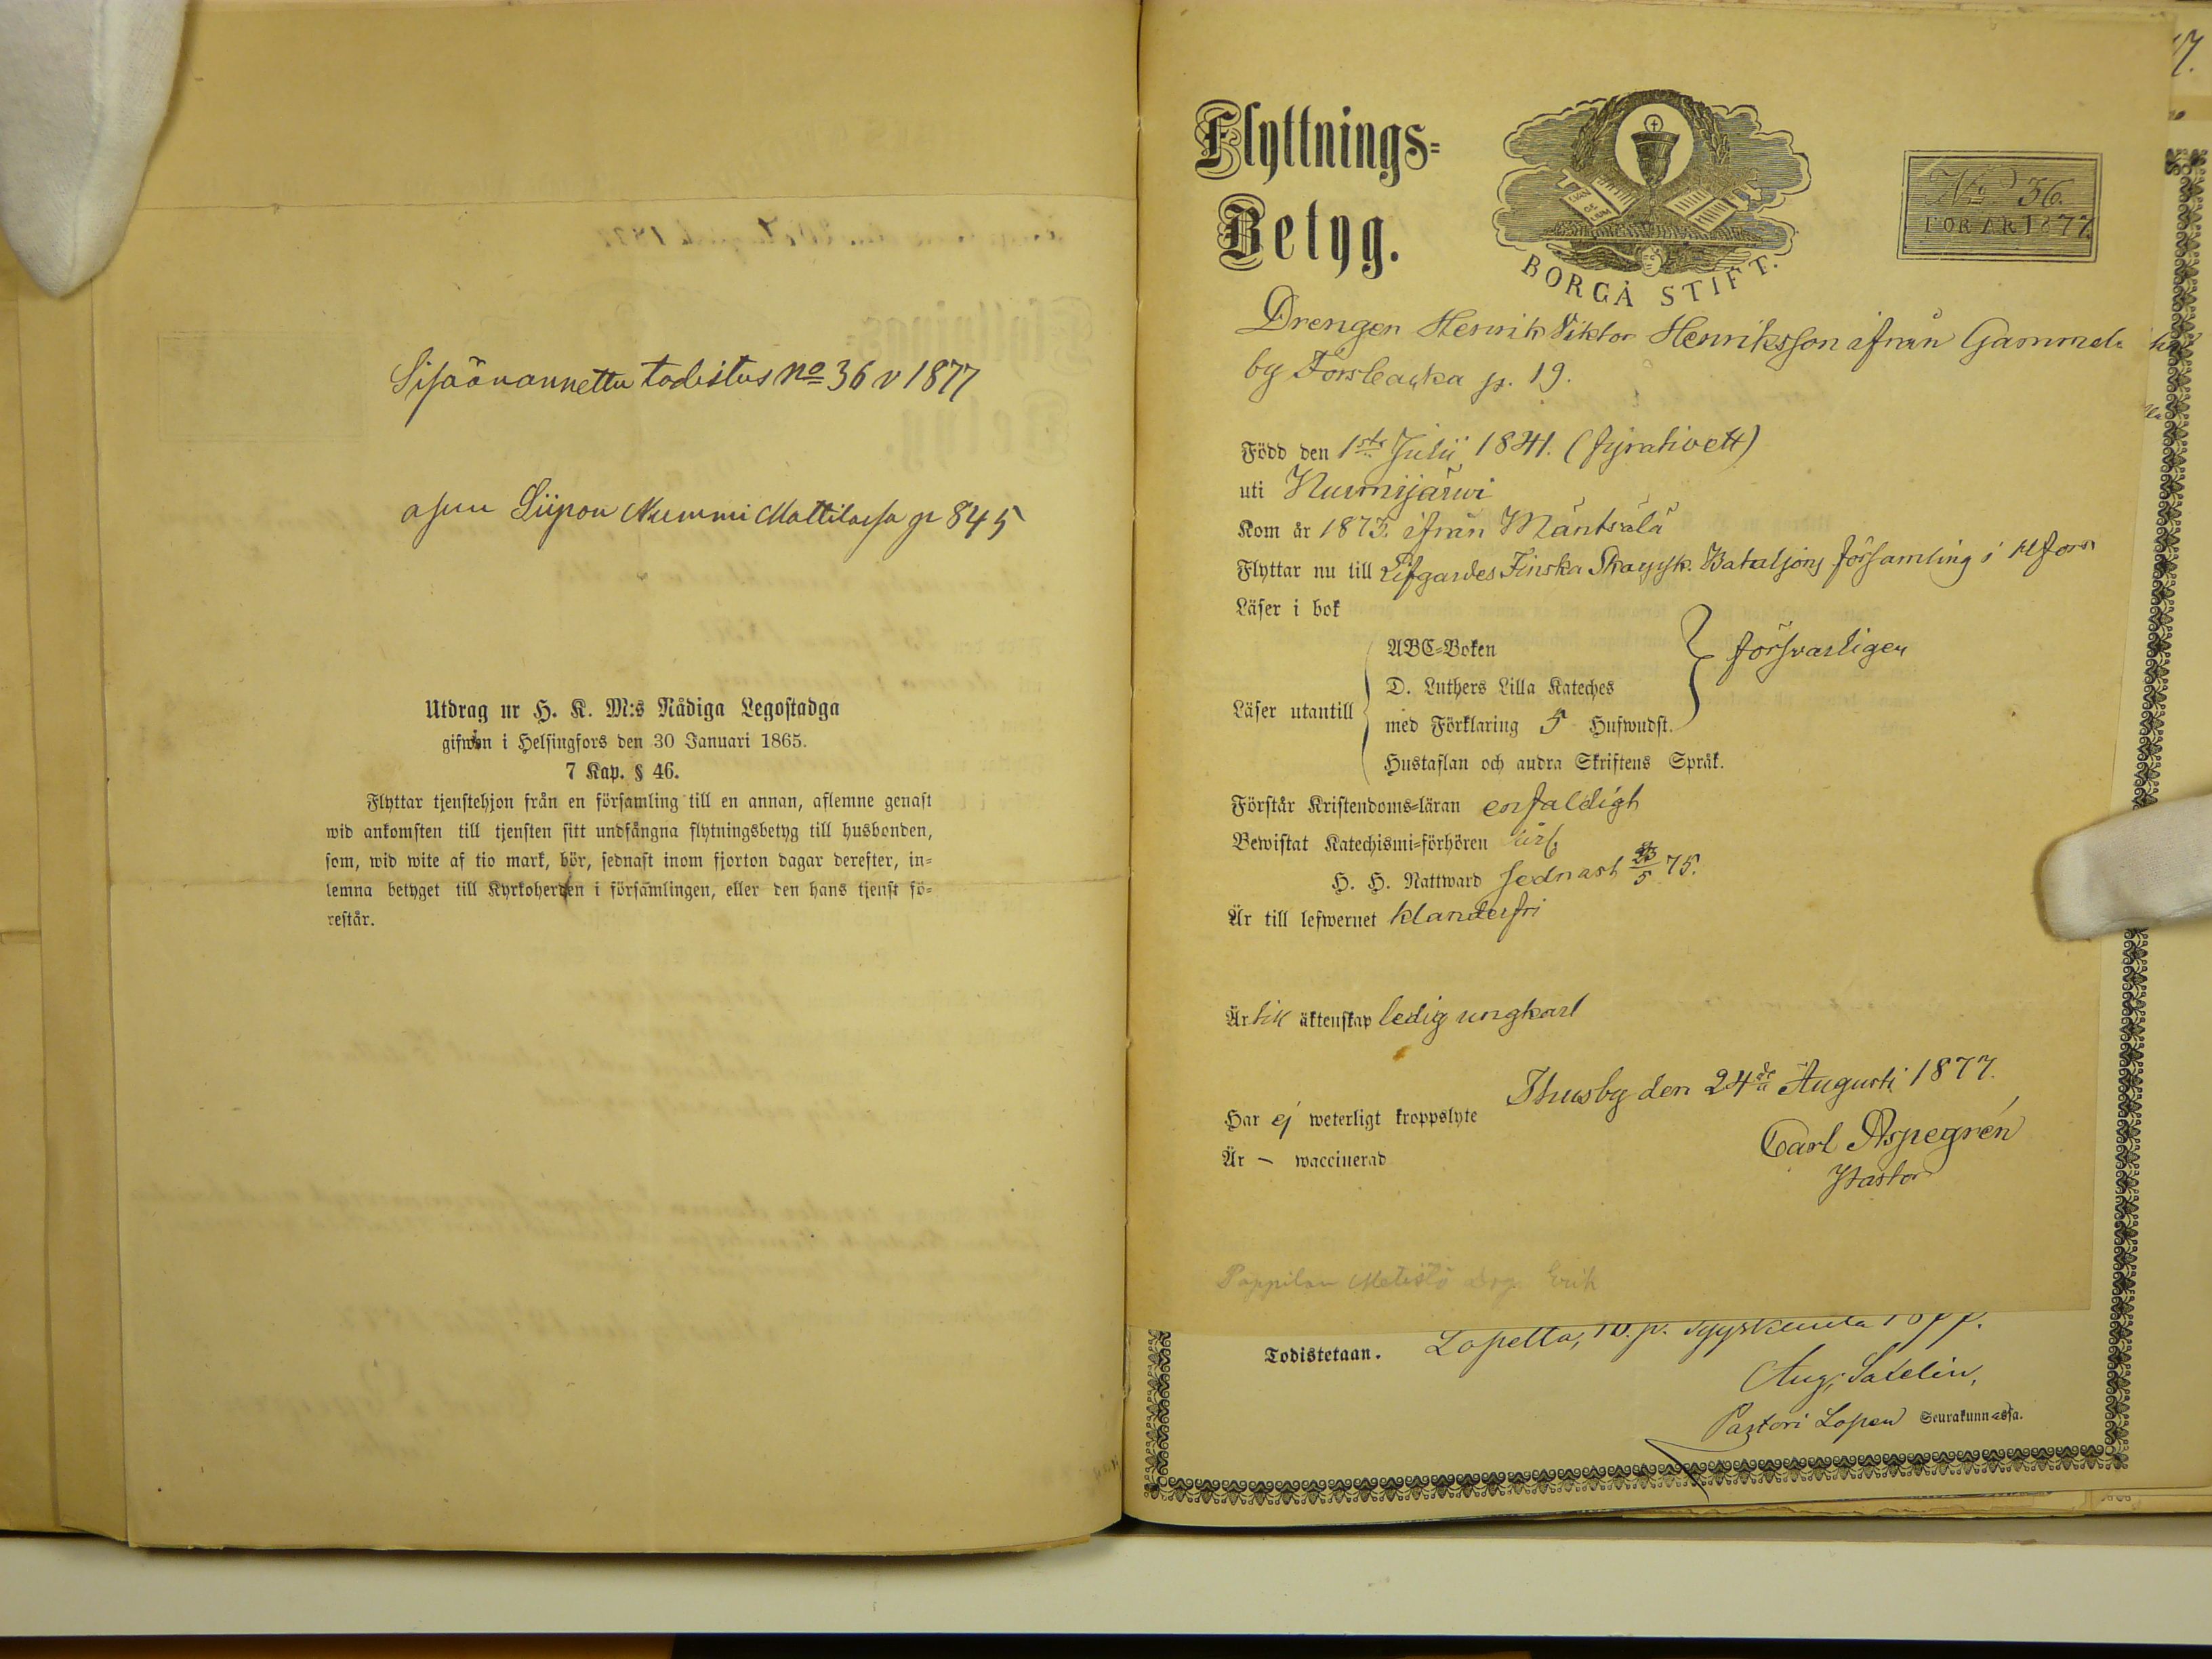 Sisäänannettu todistus No 36 v 1877
asuu Siipon Nummi Mattilassa p 845
Utdrag ur H. K. M:s Nådiga Legostadga
gifwen i Helsingfors den 30 Januari 1865.
7 Kap. § 46.
Flyttar tjenstehjon från en församling till en annan, aflemne genast
wid ankomsten till tjensten sitt undfångna flytningsbetyg till husbonden,
som, wid wite af tio mark, bör, sednast inom fjorton dagar derefter, in=
lemna betyget till Kyrkoherden i församlingen, eller den hans tjenst fö=
restår.
Flyttnings=
Betyg.
EVAN
GE
LIUM
BORGÅ STIFT.
No 36.
FÖR ÅR 1877.
Drengen Henrik Viktor Henriksson ifrån Gammel-
by Forsbacka p. 19.
Född den 1ste Julii 1841. (fyratioett)
uti Nurmijärwi
Kom år 1873. ifrån Mäntsälä
Flyttar nu till Lifgardes Finska Skarpsk. Bataljons församling i Hfors
Läser i bok
ABC=Boken
försvarligen
D. Luthers Lilla Kateches
Läser utantill
med Förklaring 5 Hufwudst.
Hustaflan och andra Skriftens Språk.
Förstår Kristendoms=läran enfaldigt
Bewistat Katechismi=förhören
H. H. Nattward sednast 5 75.
Är till lefwernet klanderfri
Är till äktenskap ledig ungkarl
Thusby den 24de Augusti 1877.
Har ej weterligt kroppslyte
Carl Aspegrén
Är — waccinerad
Pastor
Pappilan Metistö Drg. Erik
Todistetaan. Lopella, 10. p. Syyskuuta 1877.
Aug. Salelin,
Pastori Lopen Seurakunnassa.